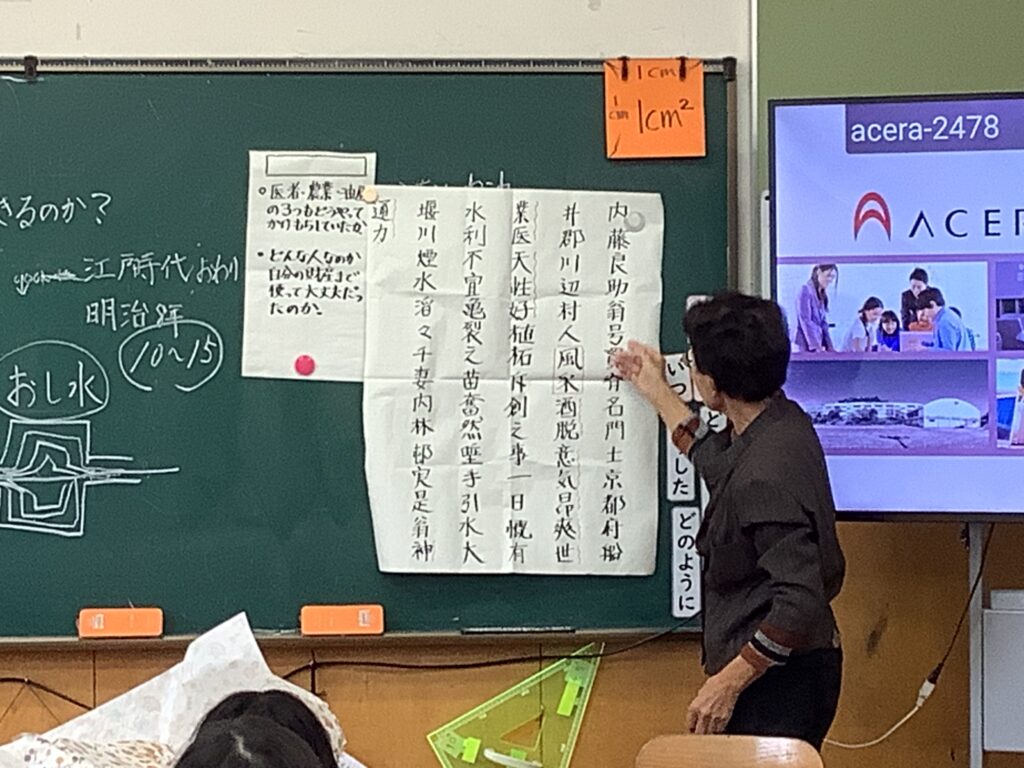 きるのか？
江戸時代 おわり
明治8年
10～15
おし水
・医者・農業・油屋
の3つもどうやって
かけもちしていたか
・どんな人なのか
自分の財産まで
使って大丈夫だっ
たのか?
内藤良助翁号
名門土京都府船
井郡川辺村人風采酒脱意気昂爽世
業医天性好植柘斥創之事一日慨有
水利不宜亀裂之苗奮然堅手引水大
堰川煙水溶々千妻内林邨実是翁神
通力
1cm
1cm
1cm²
いつ
した
どのように
acera-2478
ACER